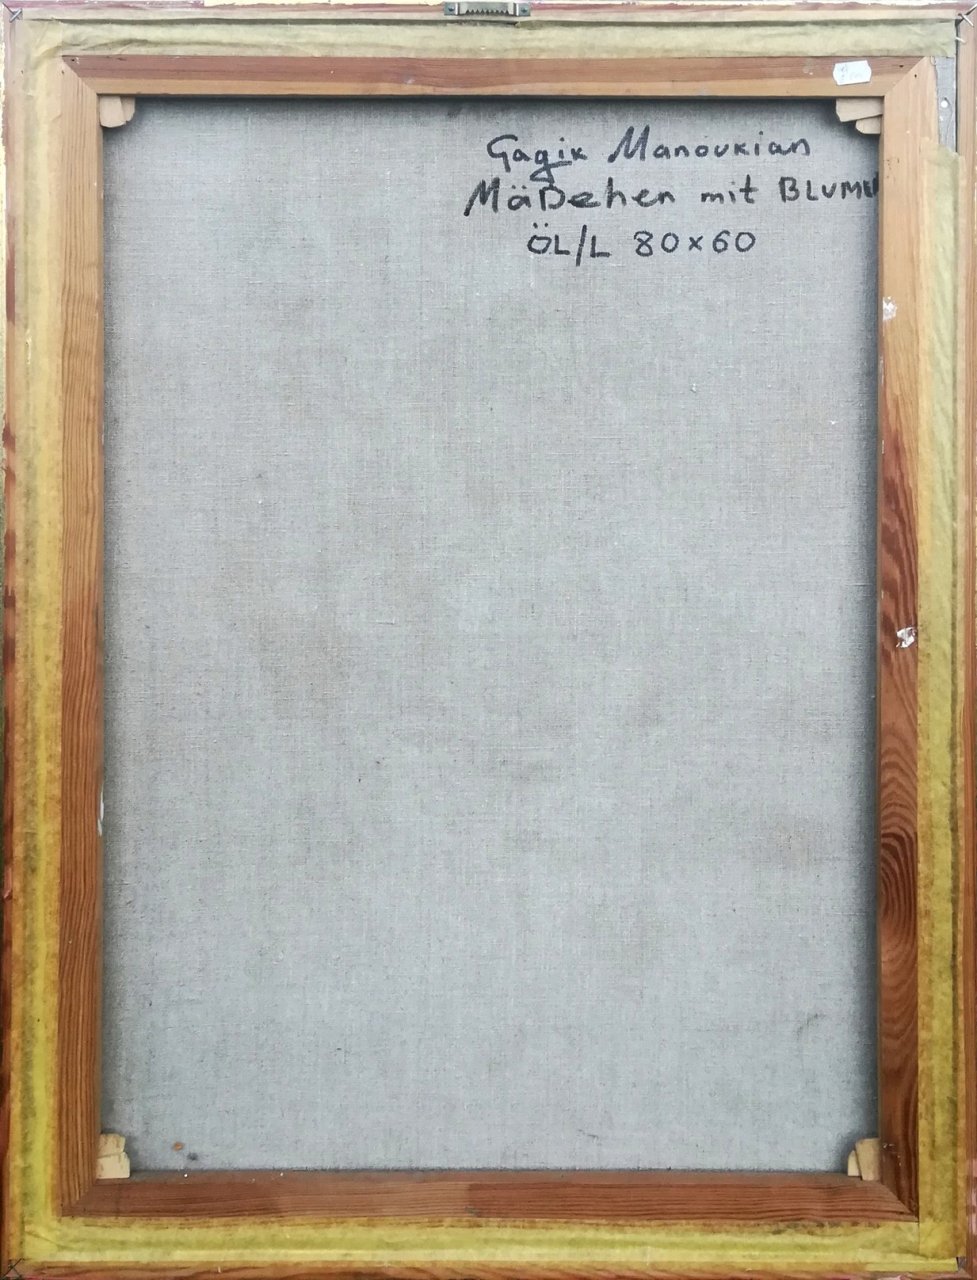 Gagik Manoukian
MäDchen mit BLUME
ÖL/L 80x60